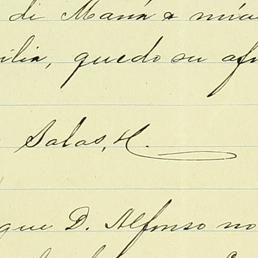 di Maná a mía
ilia, quedo su af
Salas, H.
que D. Alfonso no